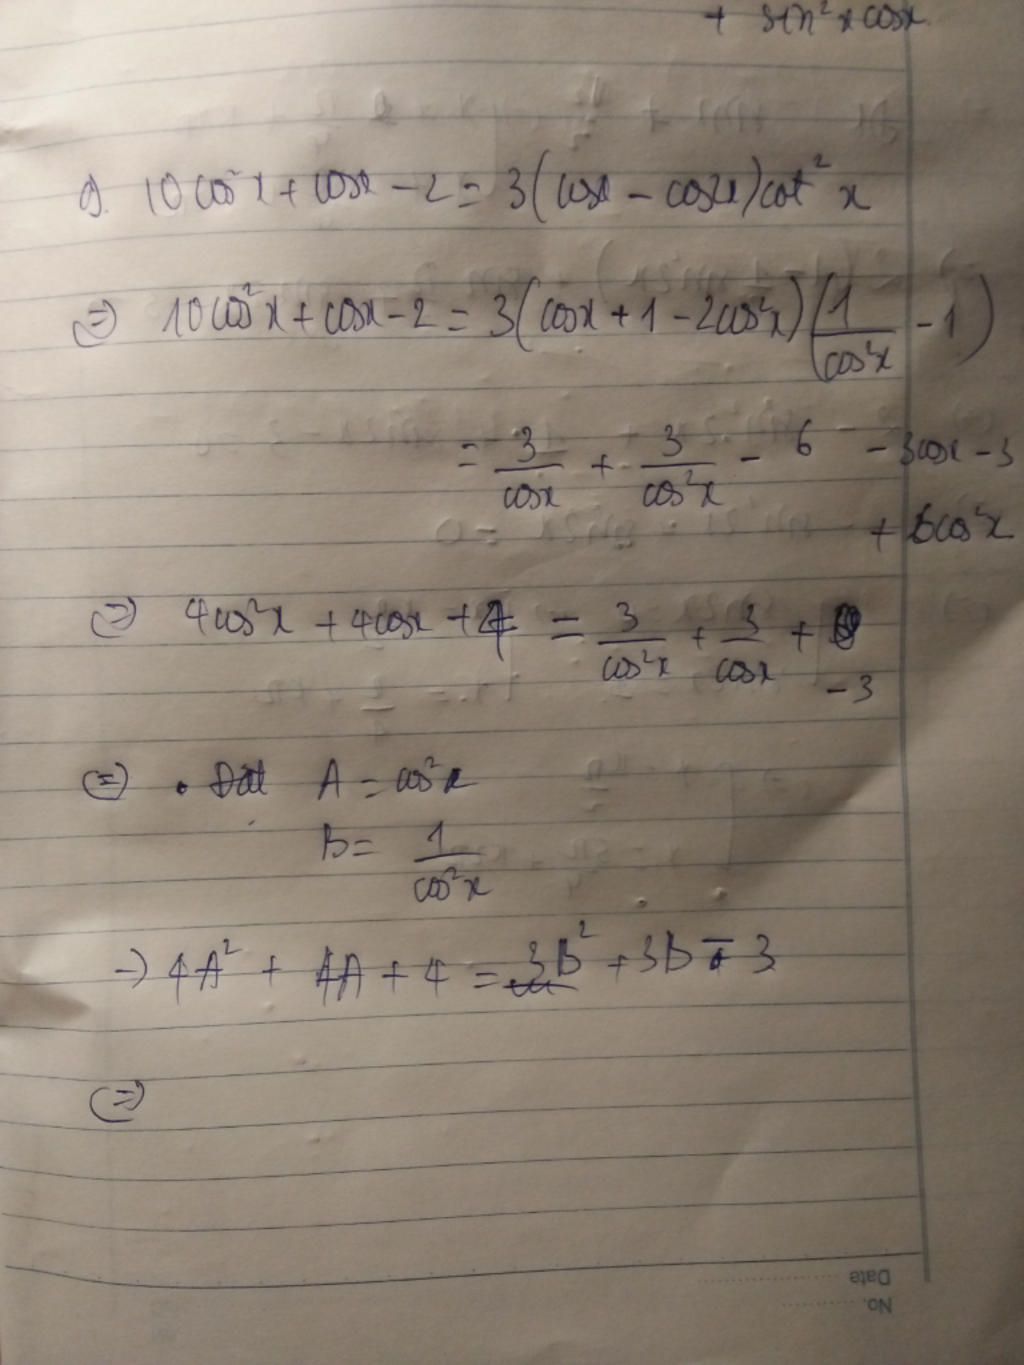 + sin²x cosx
g. 10cos²x + cosx - 2 = 3(cosx - cos2x)cot²x
⇔ 10cos²x + cosx - 2 = 3(cosx + 1 - 2cos²x)(1/cos²x - 1)
= 3/cosx + 3/cos²x - 6 - 3cosx - 3
+ 6cos²x
⇔ 4cos²x + 4cosx + 4 = 3/cos²x + 3/cosx +
- 3
⇔ • Đặt A = cos²x
B = 1/cos²x
→ 4A² + 4A + 4 = 3B² + 3B - 3
⇔
Date
No.